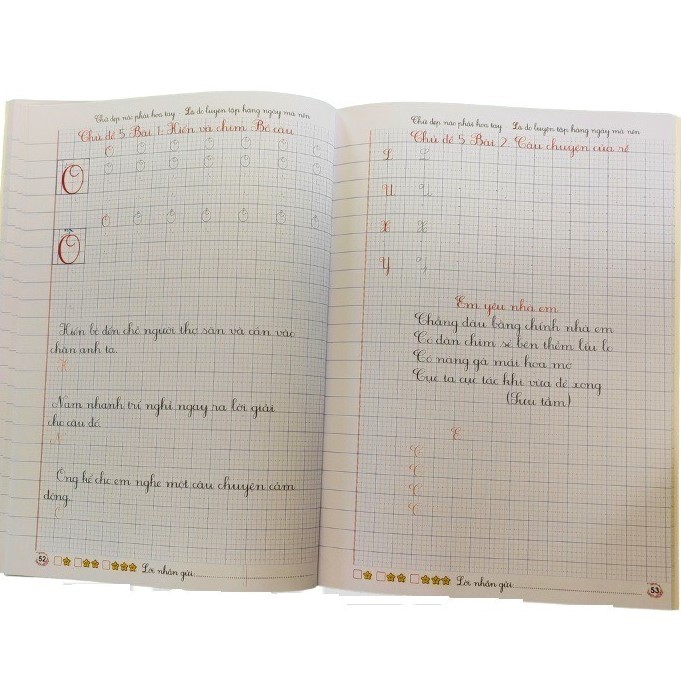 Chữ đẹp nào phải hoa tay Là do luyện tập hàng ngày mà nên
Chủ đề 5 Bài 1: Hiền và chim Bồ câu
O
O
O O O O O O O
O O O O O O O
Ô Ô Ô Ô Ô Ô Ô
Ô
Hiền bò đến chỗ người thợ săn và cắn vào
chân anh ta.
H
Nam nhanh trí nghĩ ngay ra lời giải
cho câu đố.
N
Ông kể cho em nghe một câu chuyện cảm
động.
Ô
52
Lời nhắn gửi
Chữ đẹp nào phải hoa tay Là do luyện tập hàng ngày mà nên
Chủ đề 5 Bài 2 Câu chuyện của rễ
U U
X X
Y Y
Em yêu nhà em
Chẳng đâu bằng chính nhà em
Có đàn chim sẻ bên thềm líu lo
Có nàng gà mái hoa mơ
Cục ta cục tác khi vừa đẻ xong
(Sưu tầm)
E
C
C
C
C
Lời nhắn gửi
53